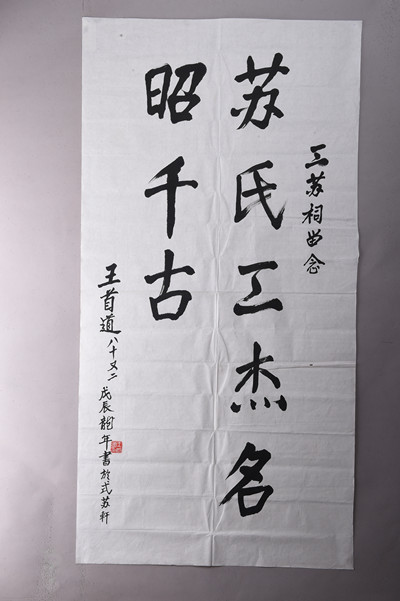 三苏祠留念
苏氏三杰名
昭千古
王首道八十又二戊辰龙年书於式苏轩